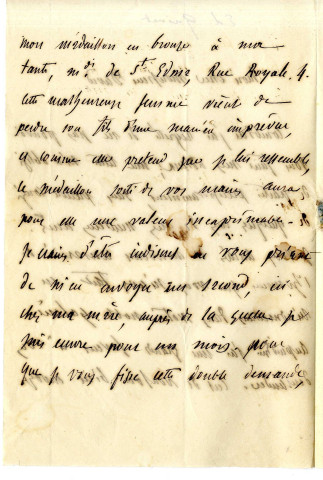 mon médaillon en bronze à ma
tante, md. de St. Edme, Rue Royale. 4.
Cette malheureuse femme vient de
perdre son fils d'une manière imprévue,
et comme elle prétend que je lui ressemble,
le médaillon sorti de vos mains aura
pour elle une valeur inexprimable.
Je crains d'être indiscret en vous priant
de m'en envoyer un second, ici
chez ma mère, auprès de laquelle je
suis encore pour un mois. pour
que je vous fisse cette double demande,